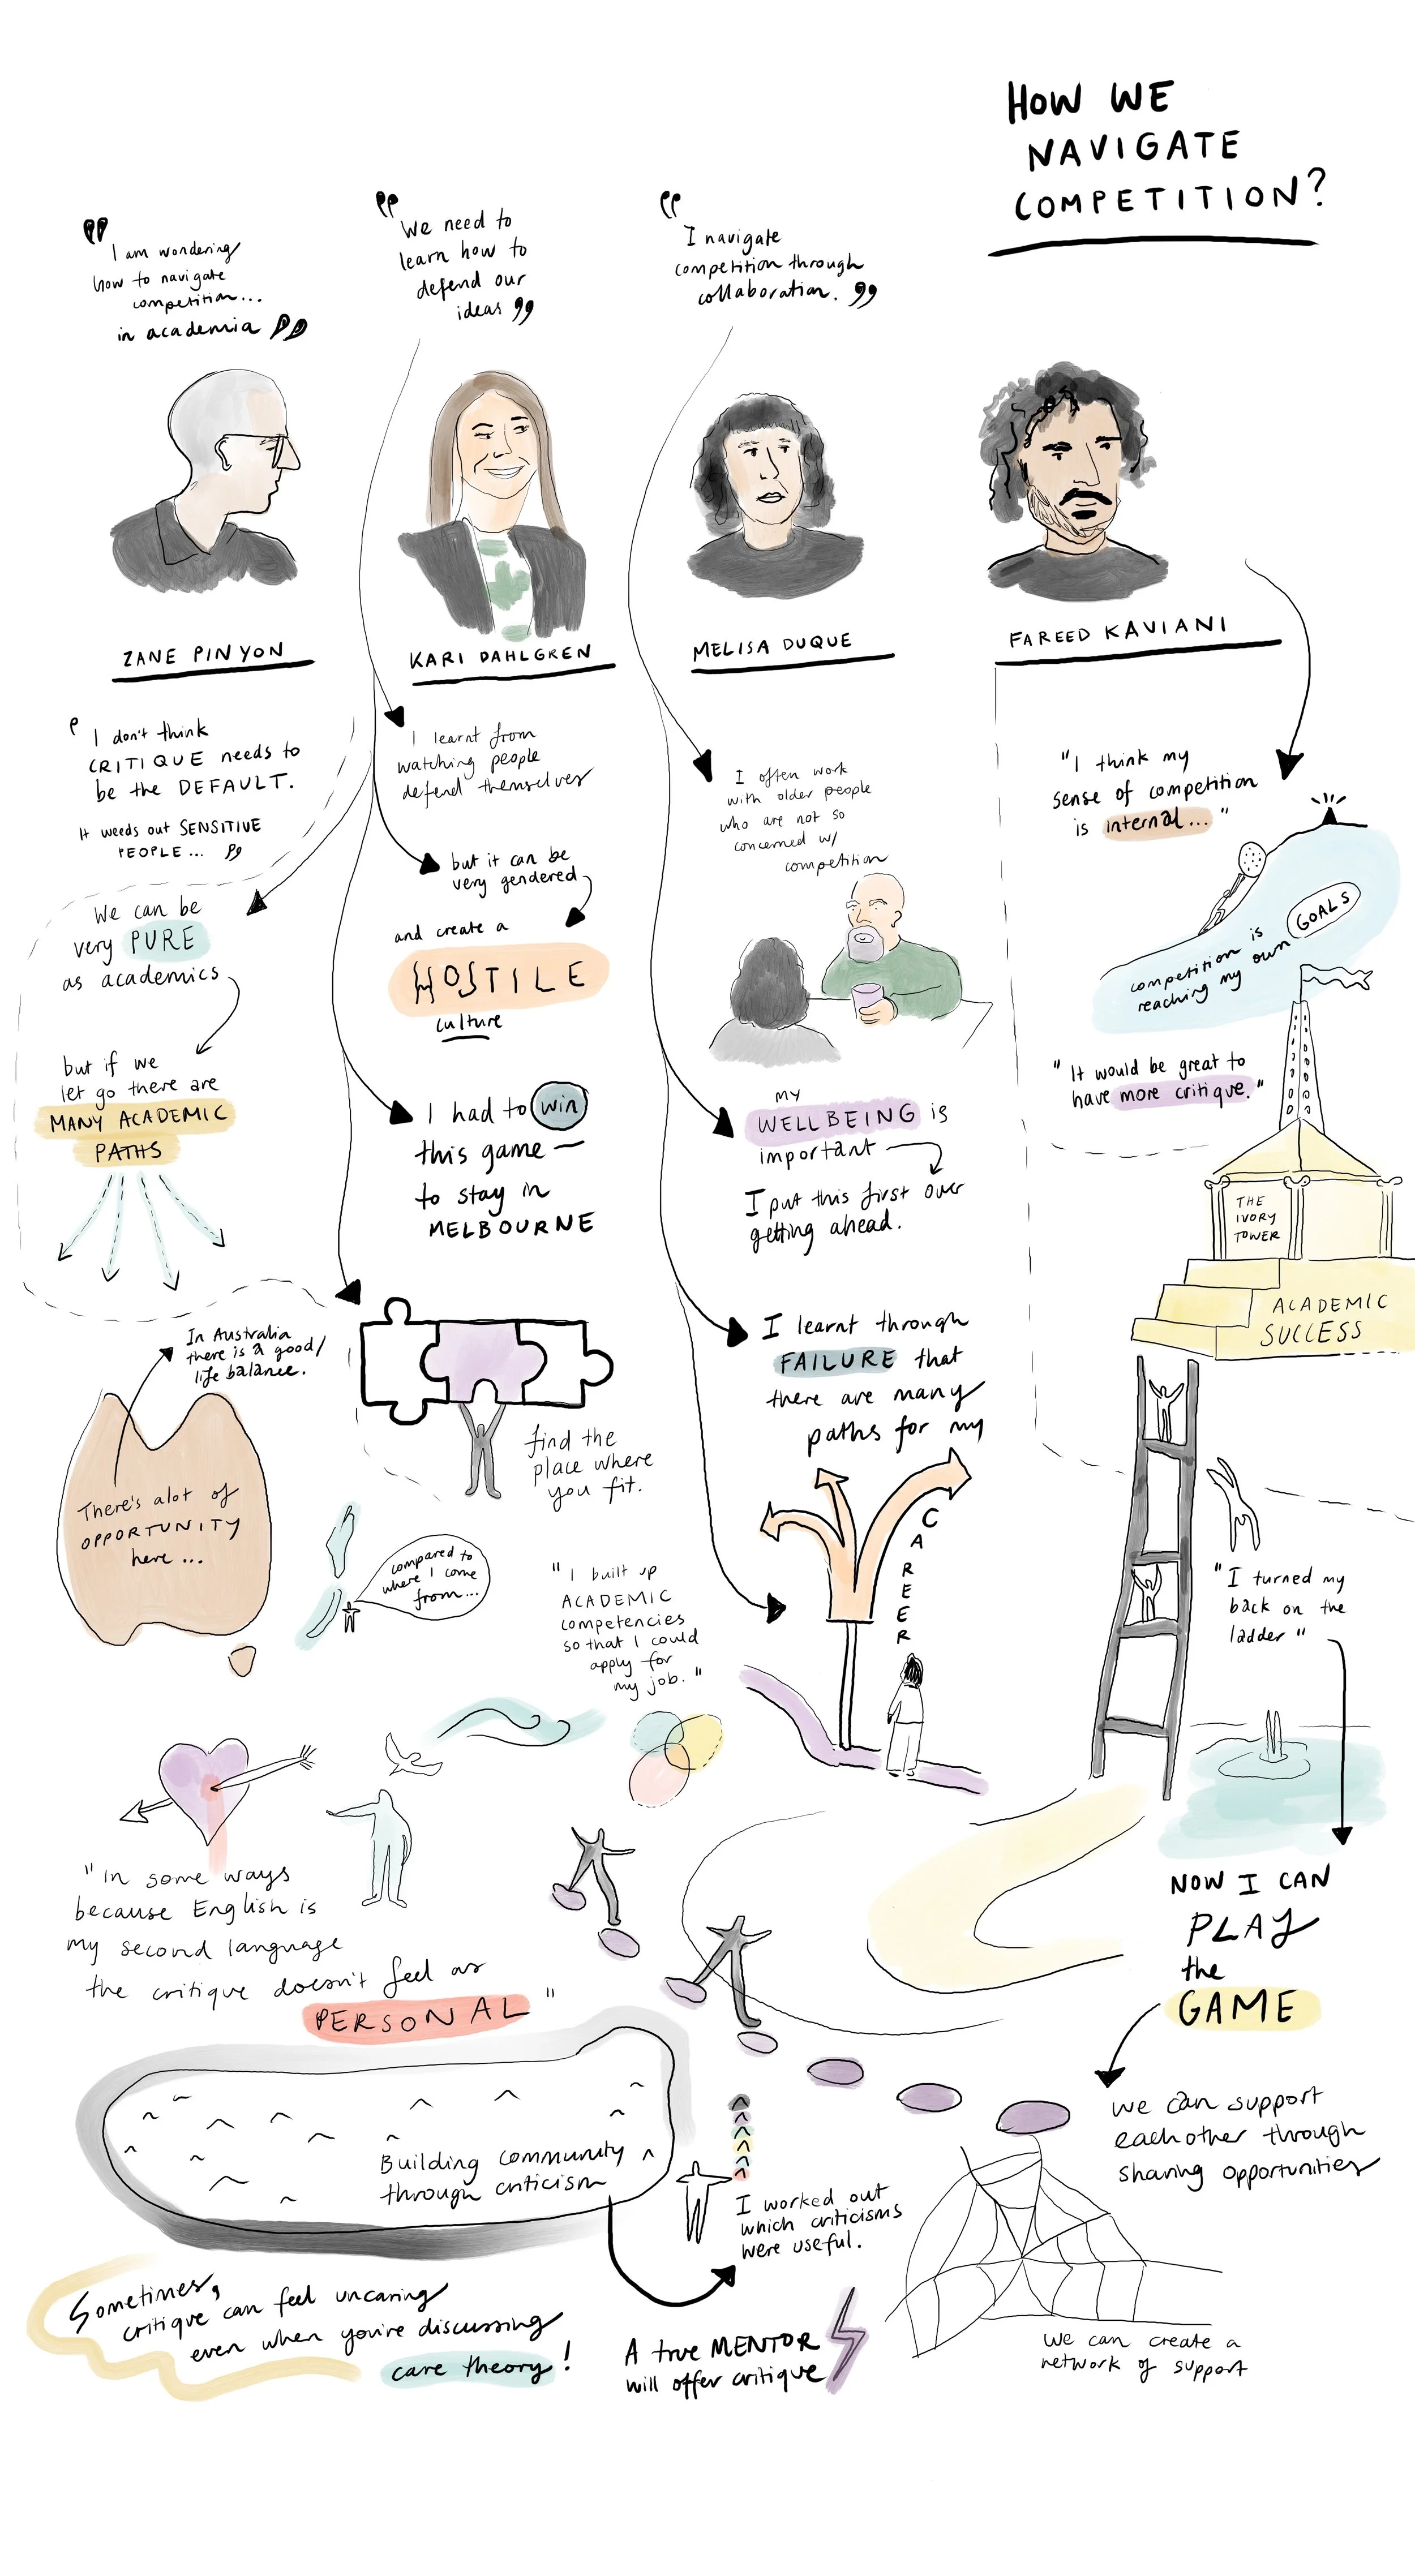 HOW WE
NAVIGATE
COMPETITION?
"I am wondering
how to navigate
competition...
in academia"
"We need to
learn how to
defend our
ideas"
"I navigate
competition through
collaboration."
ZANE PINYON
KARI DAHLGREN
MELISA DUQUE
FAREED KAVIANI
'I don't think
CRITIQUE needs to
be the DEFAULT.
It weeds out SENSITIVE
PEOPLE... "
We can be
very PURE
as academics
but if we
let go there are
MANY ACADEMIC
PATHS
In Australia
there is a good/
life balance.
There's alot of
OPPORTUNITY
here...
compared to
where I come
from...
I learnt from
watching people
defend themselves
but it can be
very gendered
and create a
HOSTILE
culture
I had to win
this game —
to stay in
MELBOURNE
find the
place where
you fit.
"I built up
ACADEMIC
competencies
so that I could
apply for
my job."
I often work
with older people
who are not so
concerned w/
competition
my
WELLBEING is
important
I put this first over
getting ahead.
I learnt through
FAILURE that
there are many
paths for my
CAREER
"I think my
sense of competition
is internal..."
competition is
reaching my own GOALS
"It would be great to
have more critique."
THE
IVORY
TOWER
ACADEMIC
SUCCESS
"I turned my
back on the
ladder"
NOW I CAN
PLAY
the
GAME
we can support
eachother through
sharing opportunities
we can create a
network of support
"In some ways
because English is
my second language
the critique doesn't feel as
PERSONAL"
Building community
through criticism
I worked out
which criticisms
were useful.
Sometimes,
critique can feel uncaring
even when you're discussing
care theory!
A true MENTOR
will offer critique